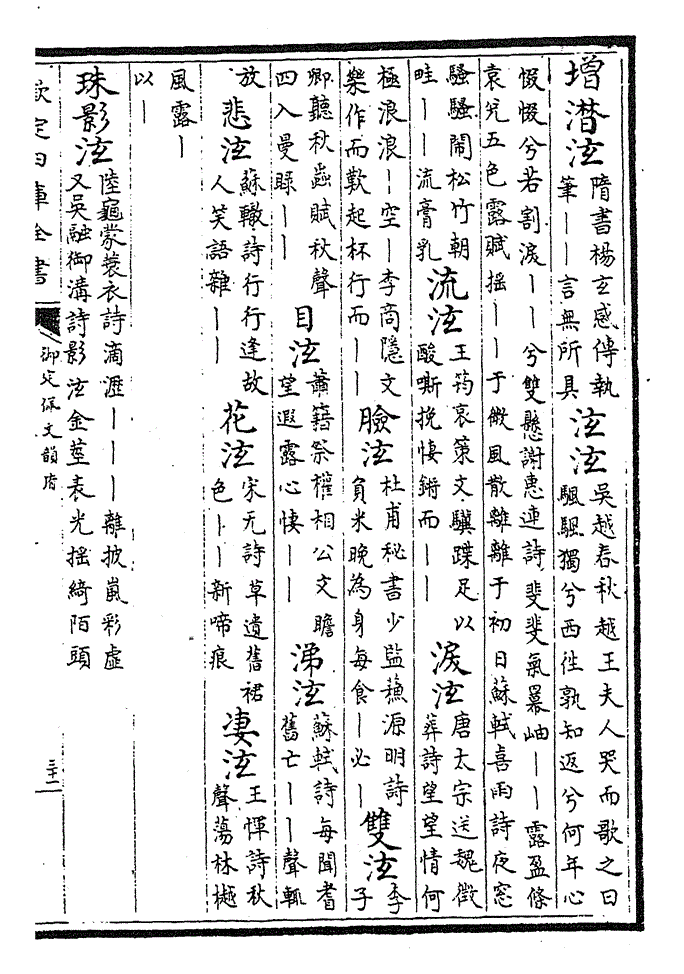 增潸泫
隋書楊玄感傳執
筆丨丨言無所具
泫泫
吳越春秋越王夫人哭而歌之曰
颿颿獨兮西往孰知返兮何年心
惙惙兮若割淚丨丨兮雙懸謝惠連詩斐斐氣羃岫丨丨露盈條
袁五色露賦摇丨丨于微風散離離于初日蘇軾喜雨詩夜窓
騷騷鬧松竹朝
畦丨丨流膏乳
流泫
王筠哀策文驥蹀足以
酸嘶挽悽鏘而丨丨
淚泫
唐太宗送魏徵
葬詩望望情何
極浪浪丨空丨李商隠文
樂作而歎起杯行而丨丨
臉泫
杜甫秘書少監蘇源明詩
負米晚為身每食丨必丨
雙泫
李
子
卿聽秋蟲賦秋聲
四入曼睩丨丨
目泫
蕭籍祭權相公文瞻
望遐露心悽丨丨
涕泫
蘇軾詩每聞耆
舊亡丨丨聲輒
放
悲泫
蘇轍詩行行逢故
人笑語雜丨丨
花泫
宋无詩草遺舊裙
色丨丨新啼痕
凄泫
王惲詩秋
聲蕩林樾
風露丨
以丨
珠影泫
陸龜蒙蓑衣詩滴瀝丨丨丨離披嵐彩虚
又吳融御溝詩影泫金莖表光摇綺陌頭
欽定四庫全書
御定佩文韻府